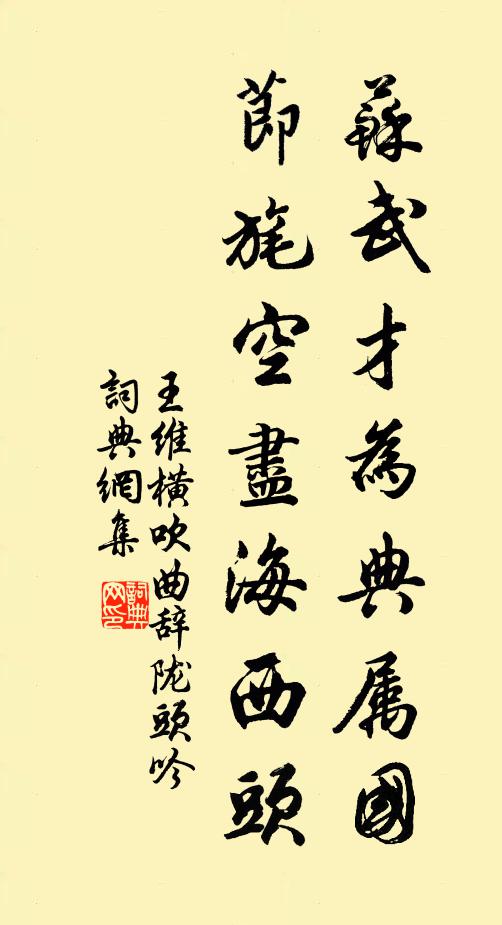 蘇武才為典属國
節旄空盡海西頭
王維橫吹曲辞陇頭吟
詞典網集
詞典网印